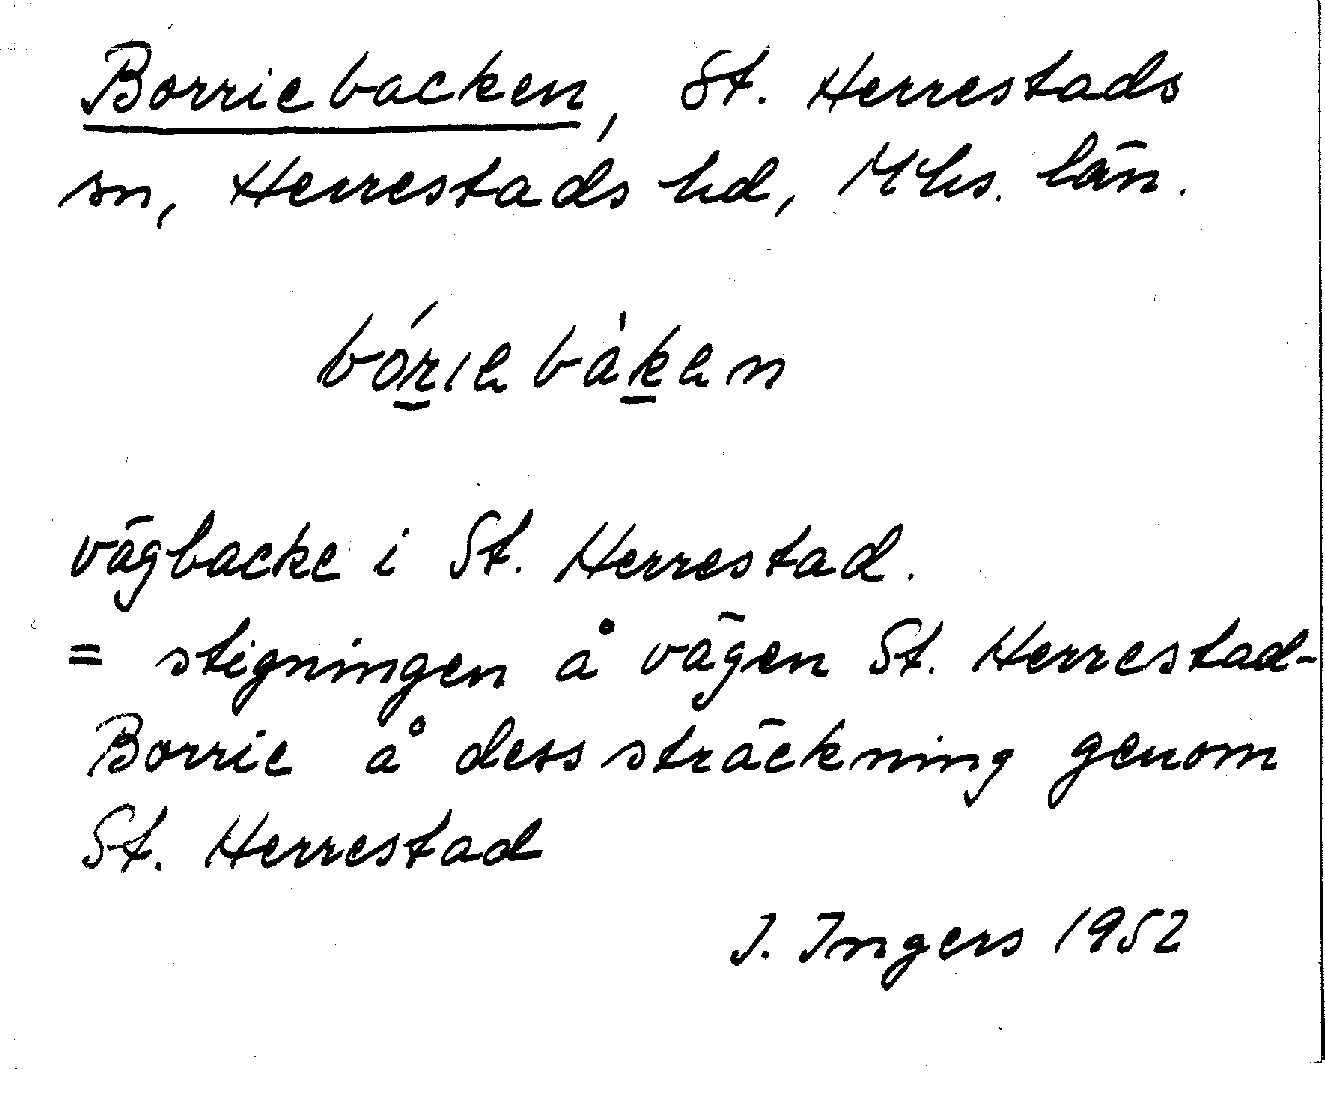 Borriebacken, St. Herrestads
sn, Herrestads hd, Mhs. län.
bóriəbàkən
vägbacke i St. Herrestad.
= stigningen å vägen St. Herrestad-
Borrie å dess sträckning genom
St. Herrestad
I. Ingers 1952